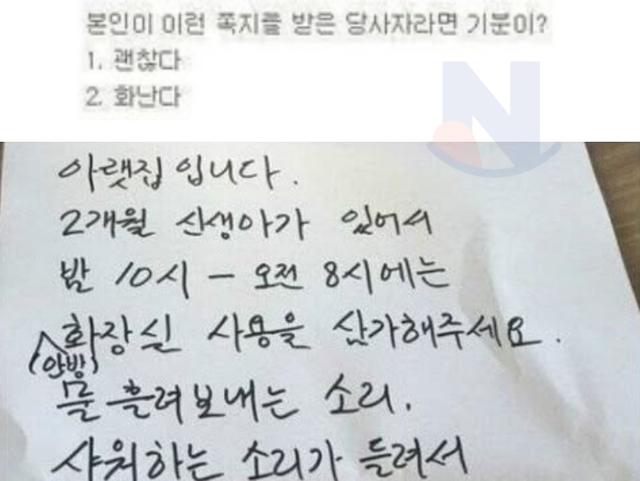 본인이 이런 쪽지를 받은 당사자라면 기분이?
1. 괜찮다
2. 화난다
N
아랫집 입니다.
2개월 신생아가 있어서
밤 10시 - 오전 8시에는
화장실 사용을 삼가해주세요.
(안방)
물 흘려보내는 소리.
샤워하는 소리가 들려서